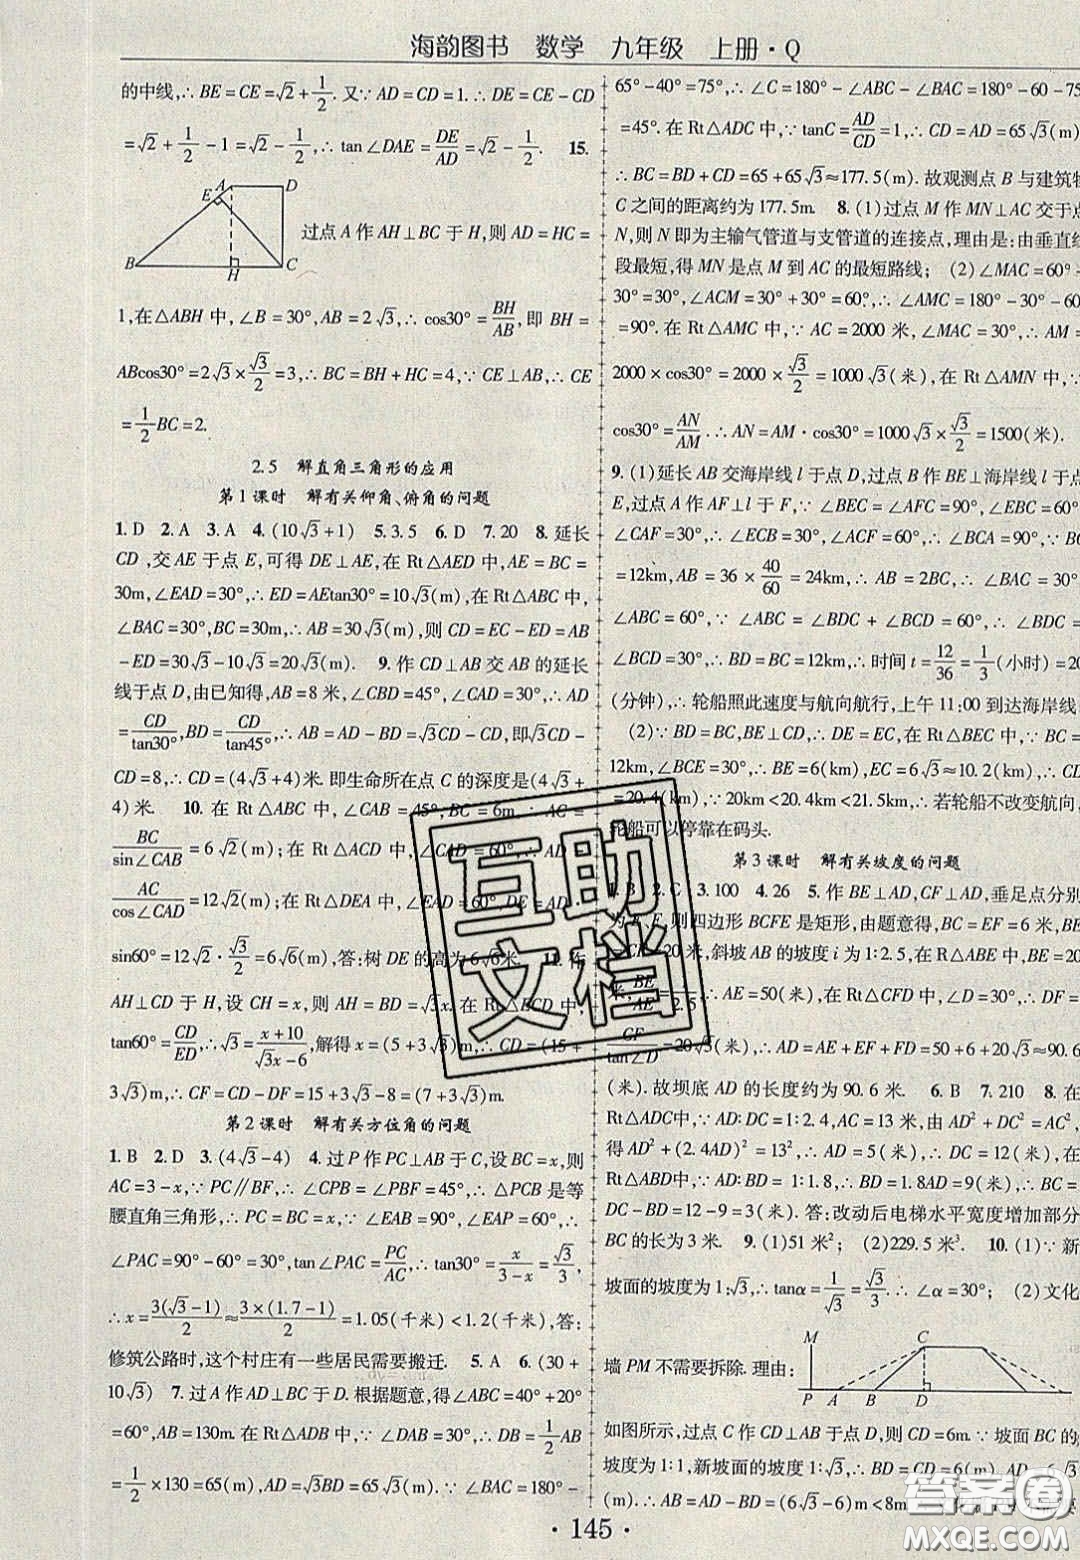 海韵图书 数学 九年级 上册·Q
的中线,∴BE=CE=√2+1/2. 又∵AD=CD=1.∴DE=CE-CD
=√2+1/2-1=√2-1/2,∴tan∠DAE=DE/AD=√2-1/2. 15.
A D E B H C
过点A作AH⊥BC于H,则AD=HC=
1,在△ABH中,∠B=30°,AB=2√3,∴cos30°=BH/AB,即BH=
ABcos30°=2√3×√3/2=3,∴BC=BH+HC=4,∵CE⊥AB,∴CE
=1/2BC=2.
2.5 解直角三角形的应用
第1课时 解有关仰角、俯角的问题
1.D 2.A 3.A 4.(10√3+1) 5.3.5 6.D 7.20 8.延长
CD,交AE于点E,可得DE⊥AE,在Rt△AED中,AE=BC=
30m,∠EAD=30°,∴ED=AEtan30°=10√3(m),在Rt△ABC中,
∠BAC=30°,BC=30m,∴AB=30√3(m),则CD=EC-ED=AB
-ED=30√3-10√3=20√3(m). 9.作CD⊥AB交AB的延长
线于点D,由已知得,AB=8米,∠CBD=45°,∠CAD=30°,∴AD
=CD/tan30°,BD=CD/tan45°,∴AB=AD-BD=√3CD-CD,即√3CD-
CD=8,∴CD=(4√3+4)米.即生命所在点C的深度是(4√3+
4)米. 10.在Rt△ABC中,∠CAB=45°,BC=6m,∴AC=
BC/sin∠CAB=6√2(m);在Rt△ACD中,∠CAD=60°,∴
AC/cos∠CAD=12√2(m);在Rt△DEA中,∠EAD=60°,DE=
sin60°=12√2·√3/2=6√6(m),答:树DE的高为6√6米. 11.作
AH⊥CD于H,设CH=x,则AH=BD=√3x.在Rt△ECD中,
tan60°=CD/ED,∴√3=x+10/√3x-6,解得x=(5+3√3)m,∴CD=(15+
3√3),∴CF=CD-DF=15+3√3-8=(7+3√3)m.
第2课时 解有关方位角的问题
1.B 2.D 3.(4√3-4) 4.过P作PC⊥AB于C,设BC=x,则
AC=3-x,∵PC∥BF,∴∠CPB=∠PBF=45°,∴△PCB是等
腰直角三角形,∴PC=BC=x,∵∠EAB=90°,∠EAP=60°,∴
∠PAC=90°-60°=30°,∵tan∠PAC=PC/AC,∴tan30°=x/3-x=√3/3,
∴x=3(√3-1)/2≈3×(1.7-1)/2=1.05(千米)<1.2(千米),答:
修筑公路时,这个村庄有一些居民需要搬迁. 5.A 6.(30+
10√3) 7.过A作AD⊥BC于D.根据题意,得∠ABC=40°+20°
=60°,AB=130m.在Rt△ADB中,∵∠DAB=30°,∴DB=1/2AB
=1/2×130=65(m),AD=√3BD=65√3(m),∵∠BAC=180°-
65°-40°=75°,∴∠C=180°-∠ABC-∠BAC=180°-60-75
=45°.在Rt△ADC中,∵tanC=AD/CD=1,∴CD=AD=65√3(m)
∴BC=BD+CD=65+65√3≈177.5(m).故观测点B与建筑物
C之间的距离约为177.5m. 8.(1)过点M作MN⊥AC交于点
N,则N即为主输气管道与支管道的连接点,理由是:由垂直线
段最短,得MN是点M到AC的最短路线;(2)∠MAC=60°-
30°=30°,∠ACM=30°+30°=60°,∴∠AMC=180°-30°-60
=90°.在Rt△AMC中,∵AC=2000米,∠MAC=30°,∴AM=
2000×cos30°=2000×√3/2=1000√3(米),在Rt△AMN中,∵
cos30°=AN/AM.∴AN=AM·cos30°=1000√3×√3/2=1500(米).
9.(1)延长AB交海岸线l于点D,过点B作BE⊥海岸线l于点
E,过点A作AF⊥l于F,∵∠BEC=∠AFC=90°,∠EBC=60°
∠CAF=30°,∴∠ECB=30°,∠ACF=60°,∴∠BCA=90°,∵BC
=12km,AB=36×40/60=24km,∴AB=2BC,∴∠BAC=30°
∠ABC=60°,∵∠ABC=∠BDC+∠BCD=60°,∴∠BDC=
∠BCD=30°,∴BD=BC=12km,∴时间t=12/36=1/3(小时)=20
(分钟),∴轮船照此速度与航向航行,上午11:00到达海岸线;
(2)∵BD=BC,BE⊥CD,∴DE=EC,在Rt△BEC中,∵BC=
12km,∠BCE=30°,∴BE=6(km),EC=6√3≈10.2(km),∴CD
=20.4(km),∵20km<20.4km<21.5km,∴若轮船不改变航向,
轮船可以停靠在码头.
第3课时 解有关坡度的问题
1.B 2.C 3.100 4.26 5.作BE⊥AD,CF⊥AD,垂足点分别
为E、F,则四边形BCFE是矩形,由题意得,BC=EF=6米,BE
=CF=20米,斜坡AB的坡度i为1:2.5,在R△ABE中,BE=20
米,BE/AE=1/2.5,∴AE=50(米),在Rt△CFD中,∠D=30°,∴DF=
CF/tan∠D=20√3(米),∴AD=AE+EF+FD=50+6+20√3≈90.6
(米).故坝底AD的长度约为90.6米. 6.B 7.210 8.在
Rt△ADC中,∵AD:DC=1:2.4,AC=13米,由AD²+DC²=AC²
得AD²+(2.4AD)²=13²,∴AD=5,∴DC=12(米),在
Rt△ABD中,∵AD:BD=1:1.8,∴BD=1.8AD=9(米),∴BC=
DC-BD=12-9=3(米).答:改动后电梯水平宽度增加部分
BC的长为3米. 9.(1)51米²;(2)229.5米³. 10.(1)∵新
坡面的坡度为1:√3,∴tanα=1/√3=√3/3.∴∠α=30°;(2)文化
墙PM不需要拆除.理由:
M C P A B D
如图所示,过点C作CD⊥AB于点D,则CD=6m.∵坡面BC的
坡度为1:1,新坡面的坡度1:√3,∴BD=CD=6(m),AD=6√3
(m),∴AB=AD-BD=(6√3-6)m<8m.
·145·
互助
文档
答案圈
MXQE.COM